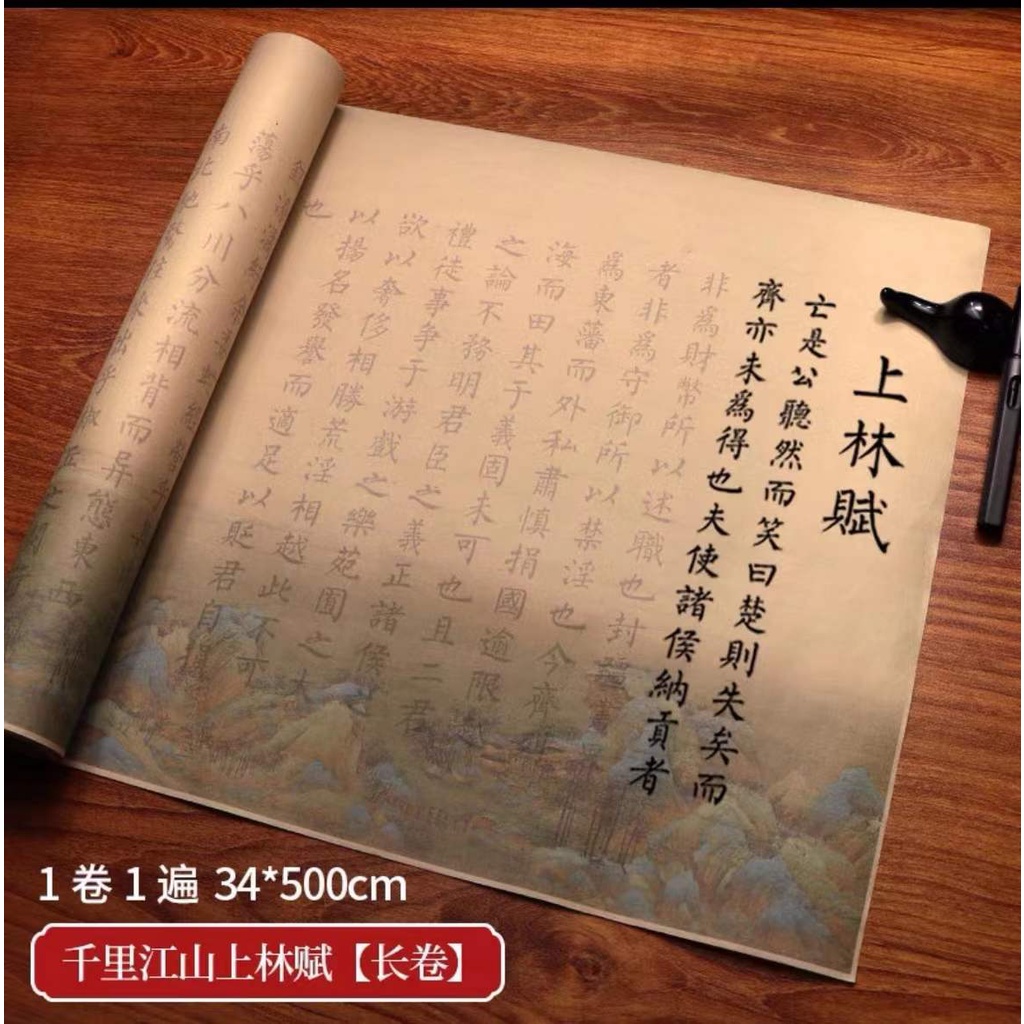 上林賦
亡是公聽然而笑曰楚則失矣而
齊亦未爲得也夫使諸侯納貢者
非爲財幣所以述職也封疆
者非爲守御所以禁淫也今齊
爲東藩而外私肅慎捐國逾限
海而田其于義固未可也且二君
之論不務明君臣之義正諸侯
禮徒事争于游戲之樂苑囿之大
欲以奢侈相勝荒淫相越此不可
以揚名發譽而適足以貶君自損
也
蕩乎八川分流相背而异態東西
南北
1卷1遍 34*500cm
千里江山上林赋【长卷】